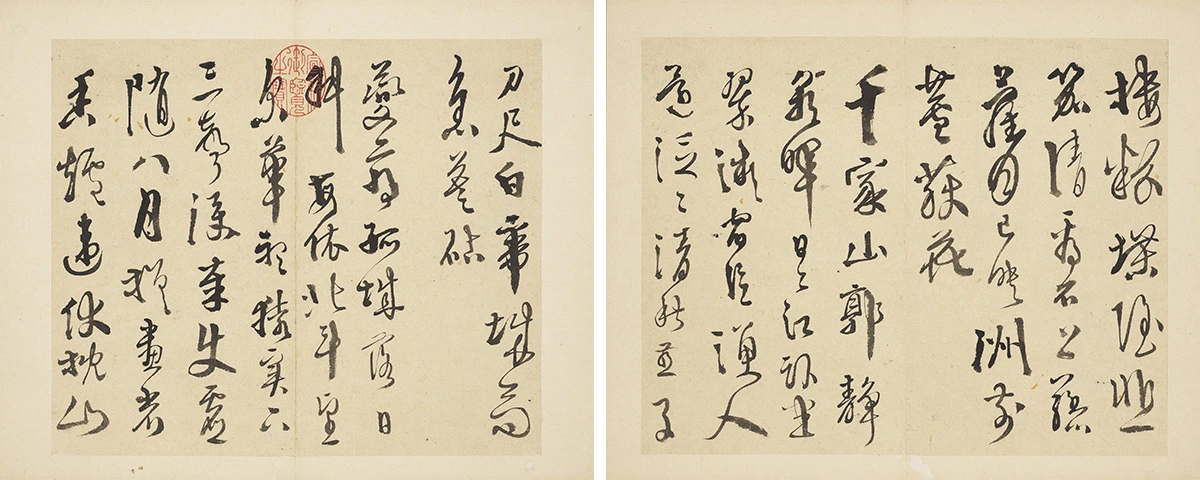 刀尺白帝城高
急暮砧
夔府孤城落日
斜每依北斗望
京華聽猿實下
三聲淚奉使虛
隨八月槎畫省
香爐違伏枕山
樓粉堞隱悲
笳請看石上藤
蘿月已映洲前
蘆荻花
千家山郭靜
朝暉日日江樓坐
翠微信宿漁人
還泛泛清秋燕子